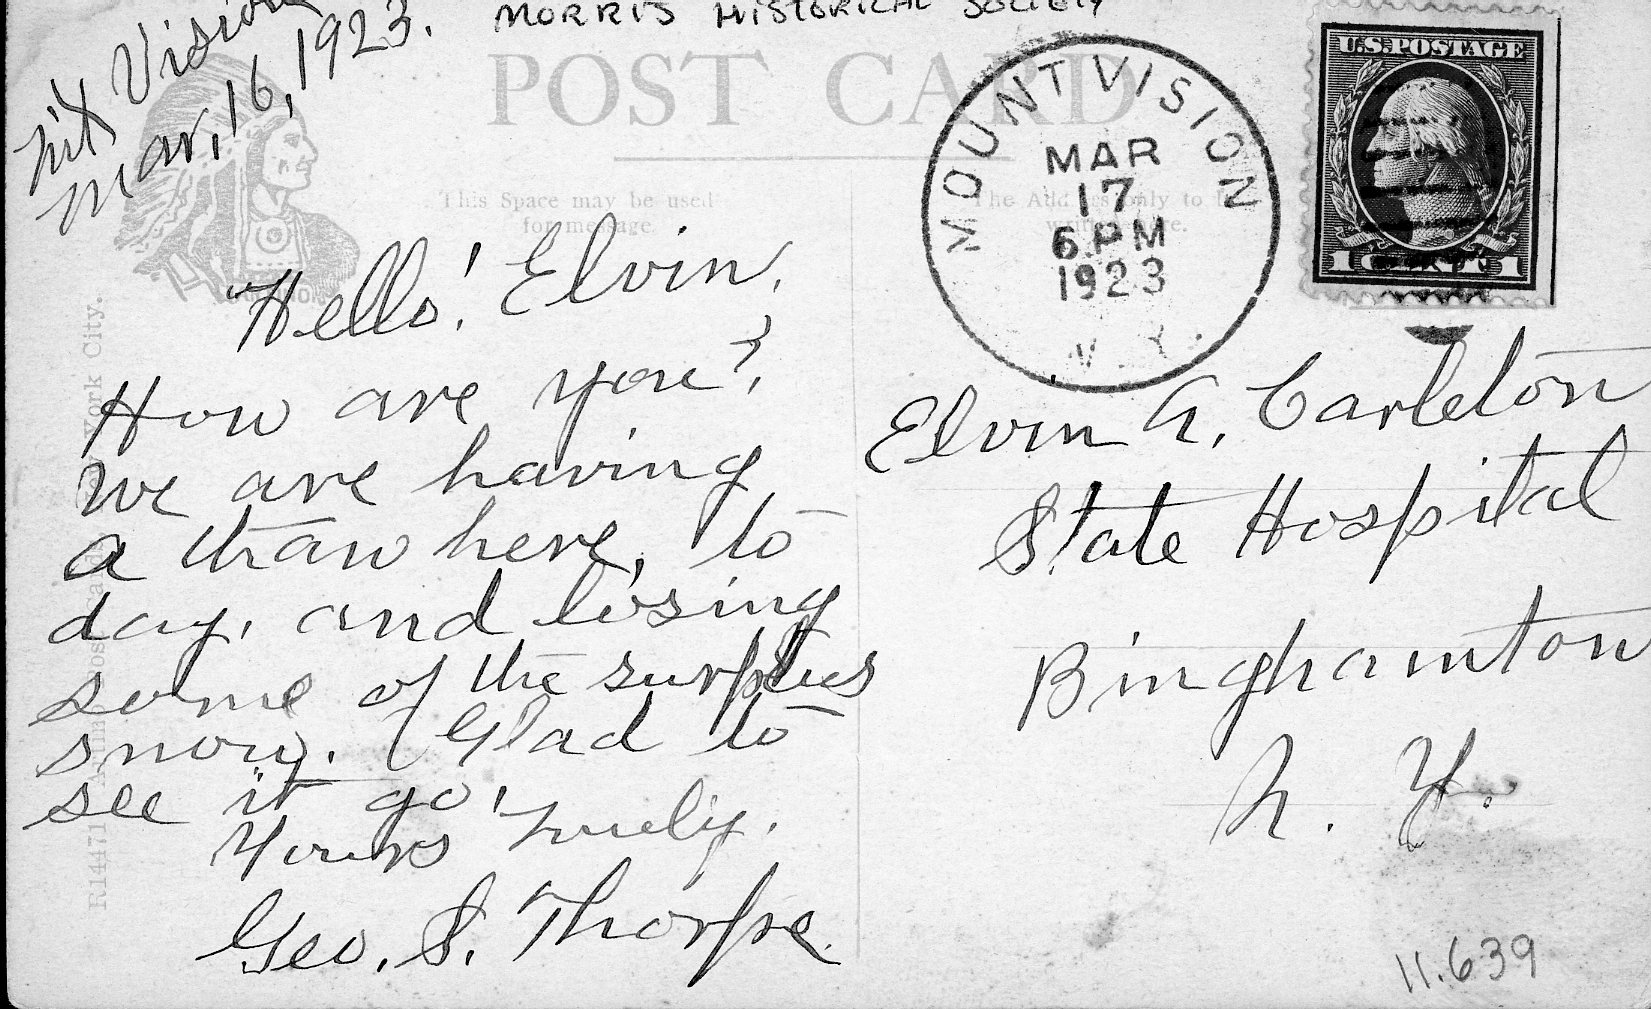 Mt Vision
Mar, 16, 1923.
MORRIS HISTORICAL SOCIETY
POST CARD
This Space may be used
for message.
"Hello! Elvin.
How are you?
We are having
a thaw here, to
day, and losing
some of the surplus
snow. (Glad to
see it go.
Yours truly.
Geo. S. Thorpe.
MOUNT VISION
MAR
17
6 PM
1923
N. Y.
U.S. POSTAGE
1 1
Elvin A. Carleton
State Hospital
Binghamton
N. Y.
11.639
R14471
York City.